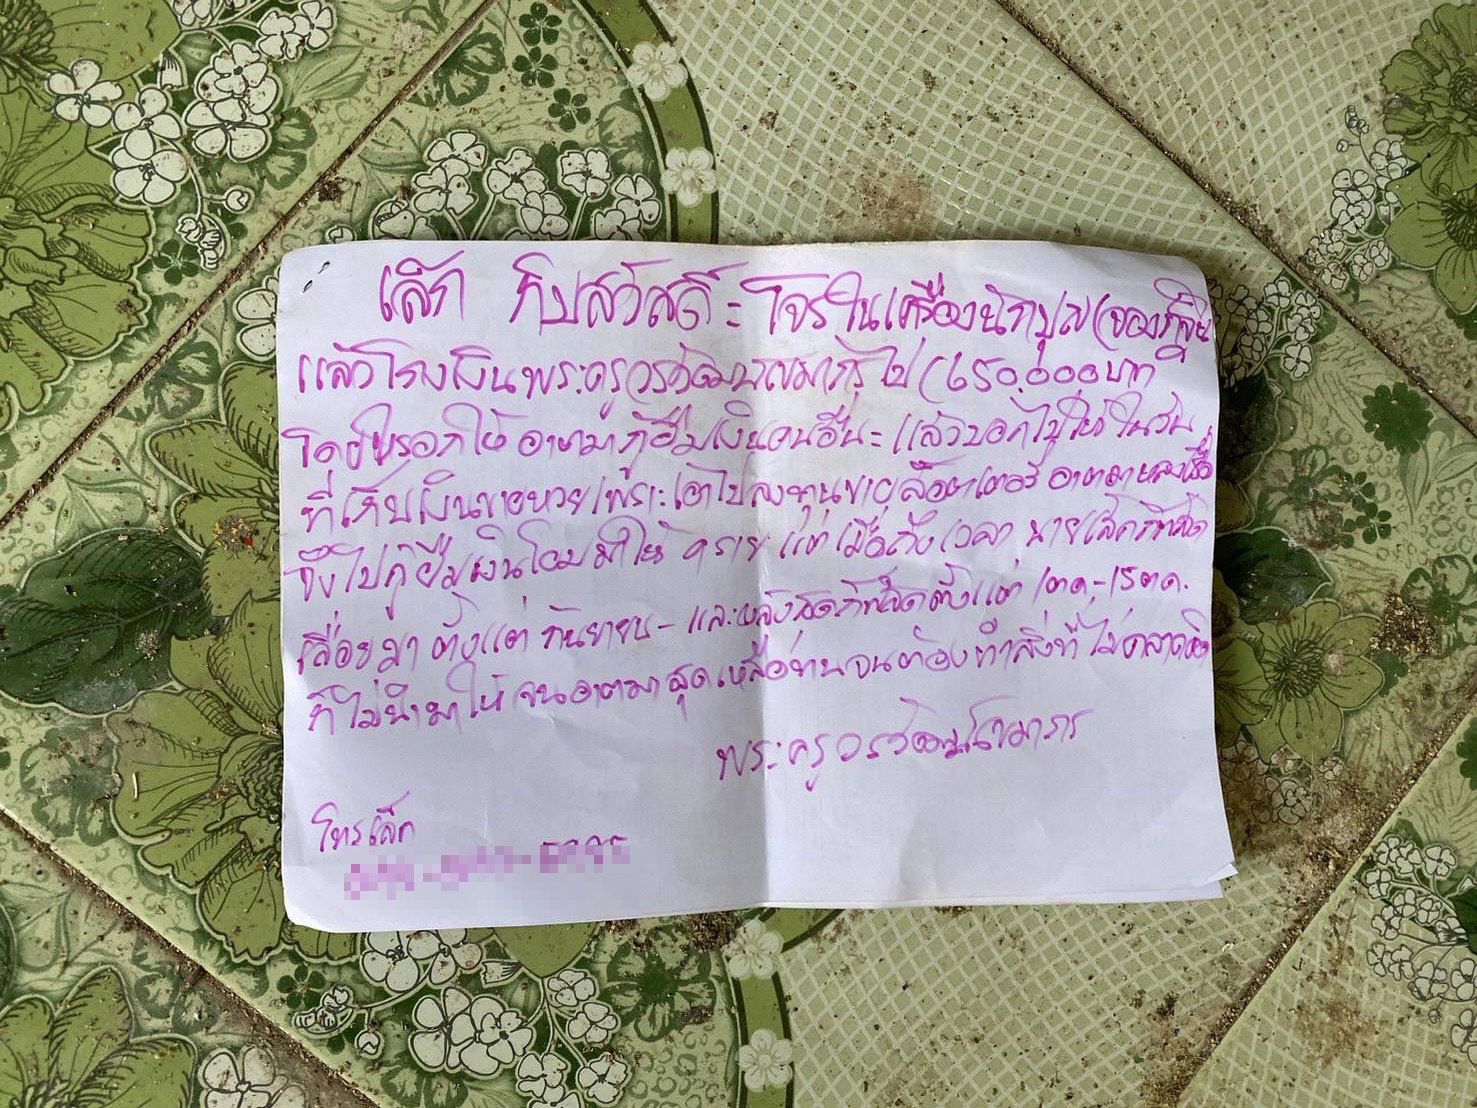 เล็ก ทิปสวัสดิ์ = โจรในเครื่องนักบุญ
แล้วโกงเงินพระครูวรวัฒน ไป (650,000บาท
โดยหรอกให้ อาตมากู้ยืมเงินคนอื่น = แล้วบอกไปให้ในวัน
ที่เก็บเงินขายหวย เพราะเอาไปลงทุนขายล๊อตเตอรี่ อาตมาหลงเชื่อ
จึงไปกู้ยืมเงินโอนมาให้ แต่เมื่อถึงเวลา นายเล็กก็ผลัด
เลื่อยมา ตั้งแต่ กันยายน - และหลังสุดก็ผลัดตั้งแต่ 1ตค.-15ตค.
ก็ไม่นำมาให้ จนอาตมาสุดเหลือทานจนต้องทำสิ่งที่ไม่คลาดคิด
พระครูวรวัฒน
โทรเล็ก